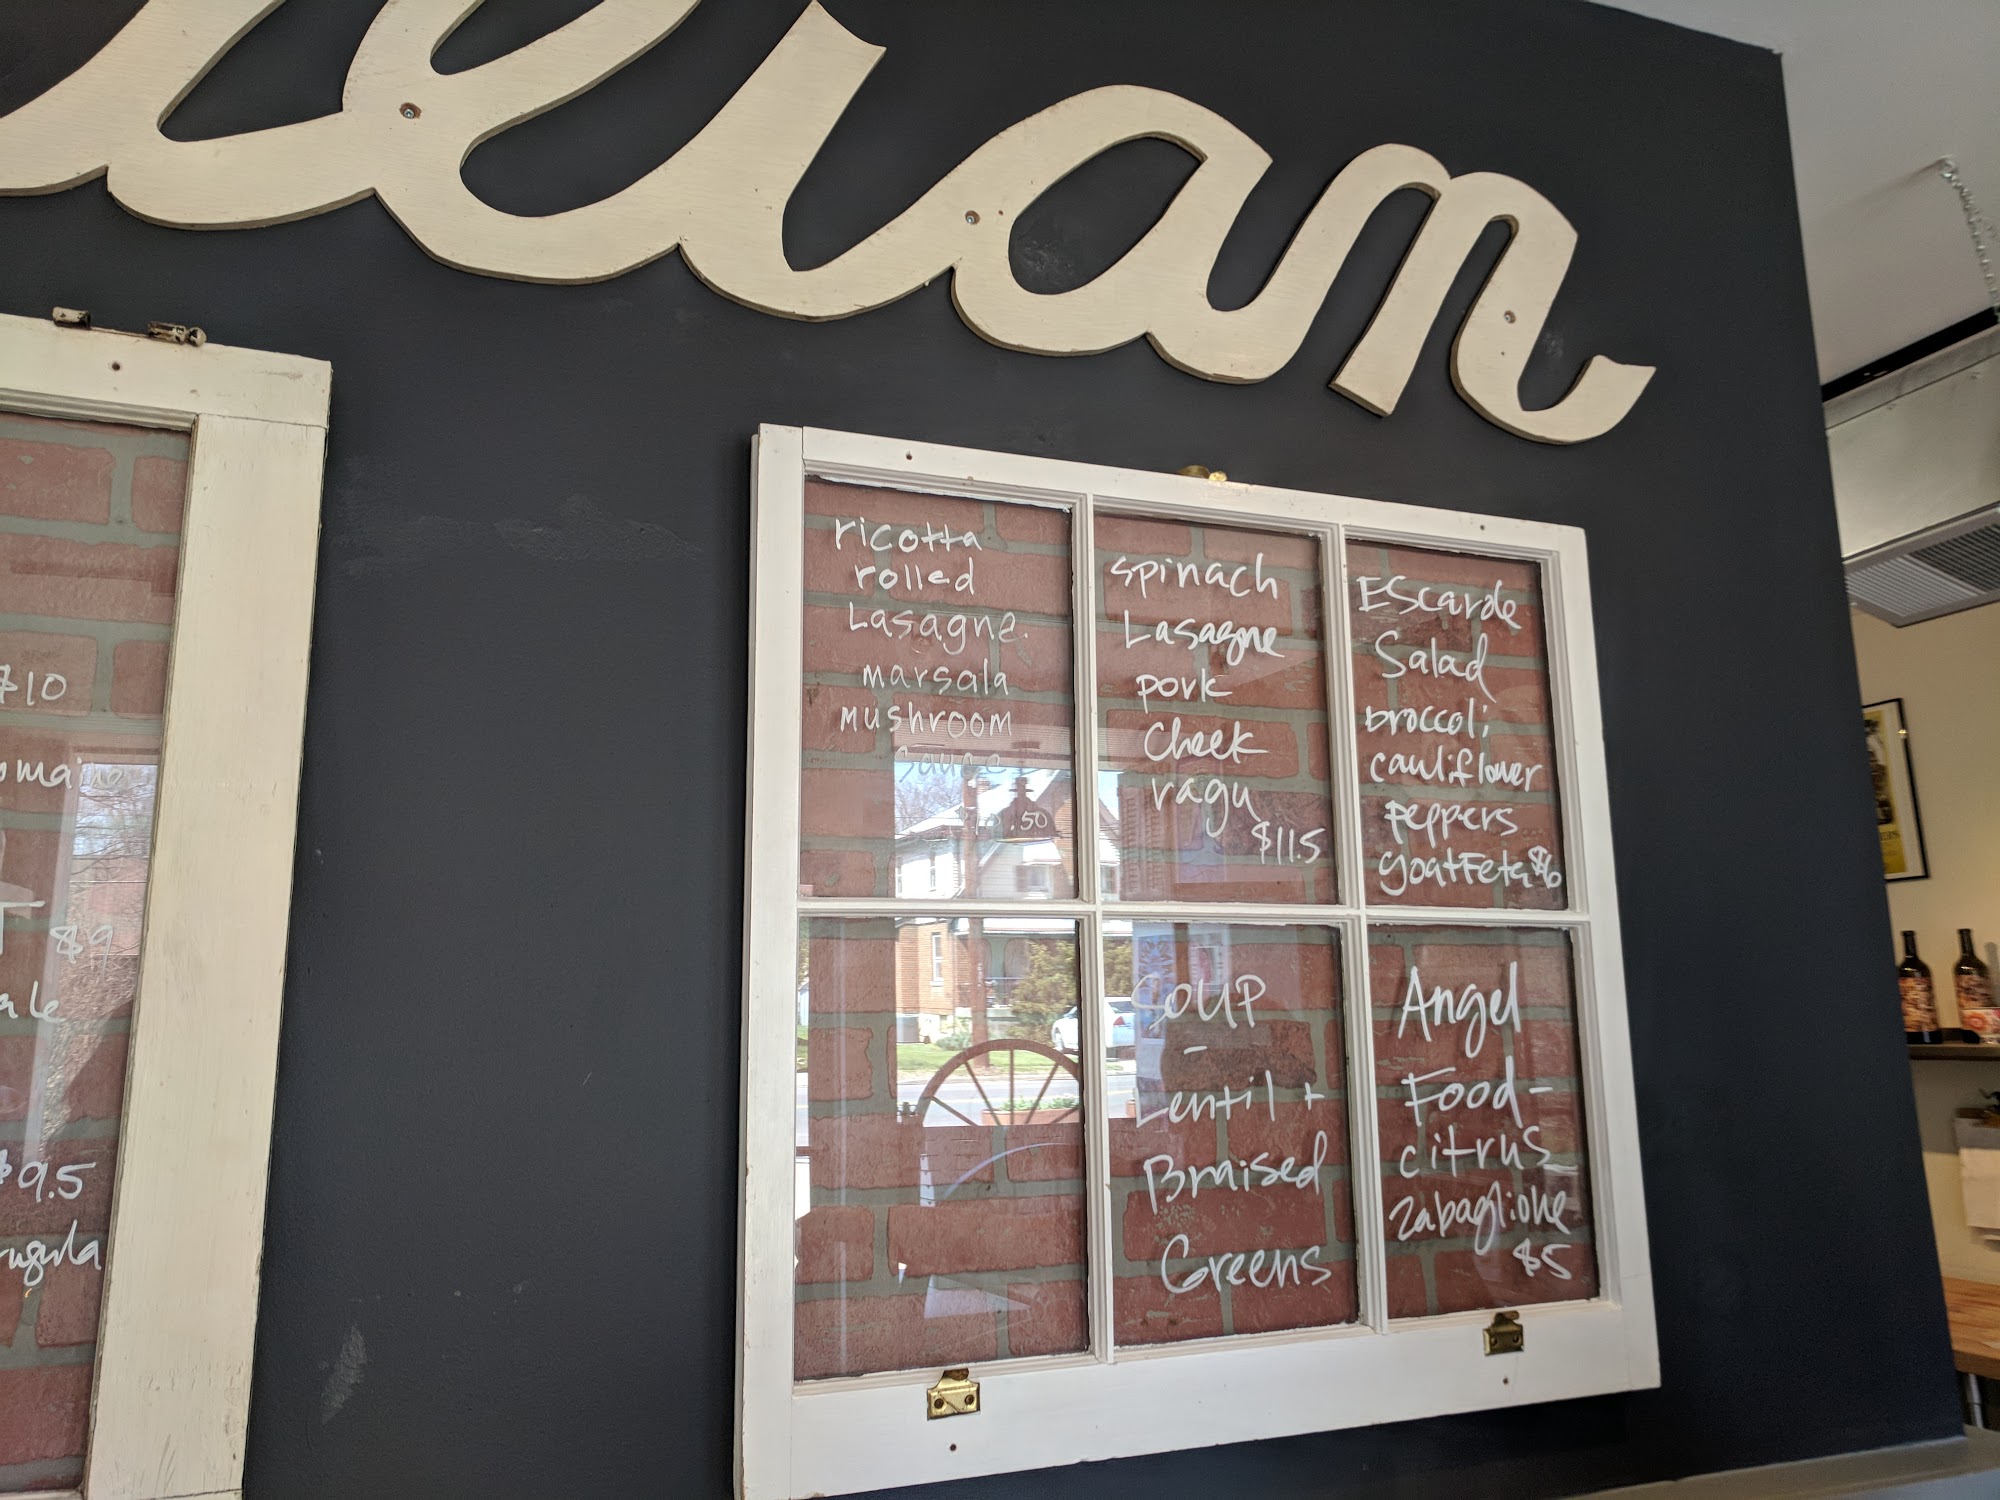 $10
$9
$9.5
ricotta
rolled
Lasagne
marsala
mushroom
sauce
.50
spinach
Lasagne
pork
Cheek
ragu
$11.5
Escarole
Salad
broccoli,
cauliflower
peppers
goat Feta $6
SOUP
-
Lentil +
Braised
Greens
Angel
Food -
citrus
zabaglione
$5